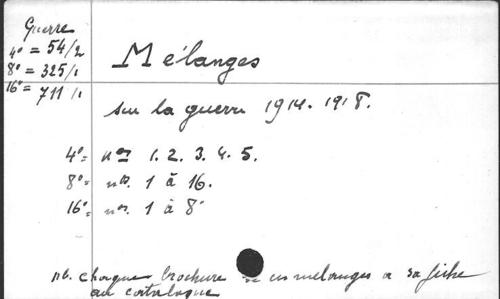 Guerre
4º = 54/2
8º = 325/1
16º = 711/1
Mélanges
sur la guerre 1914-1918.
4º = nos 1. 2. 3. 4. 5.
8º = nos. 1 à 16.
16º = nos. 1 à 8
nb. chaque brochure de ces mélanges a sa fiche
au catalogue